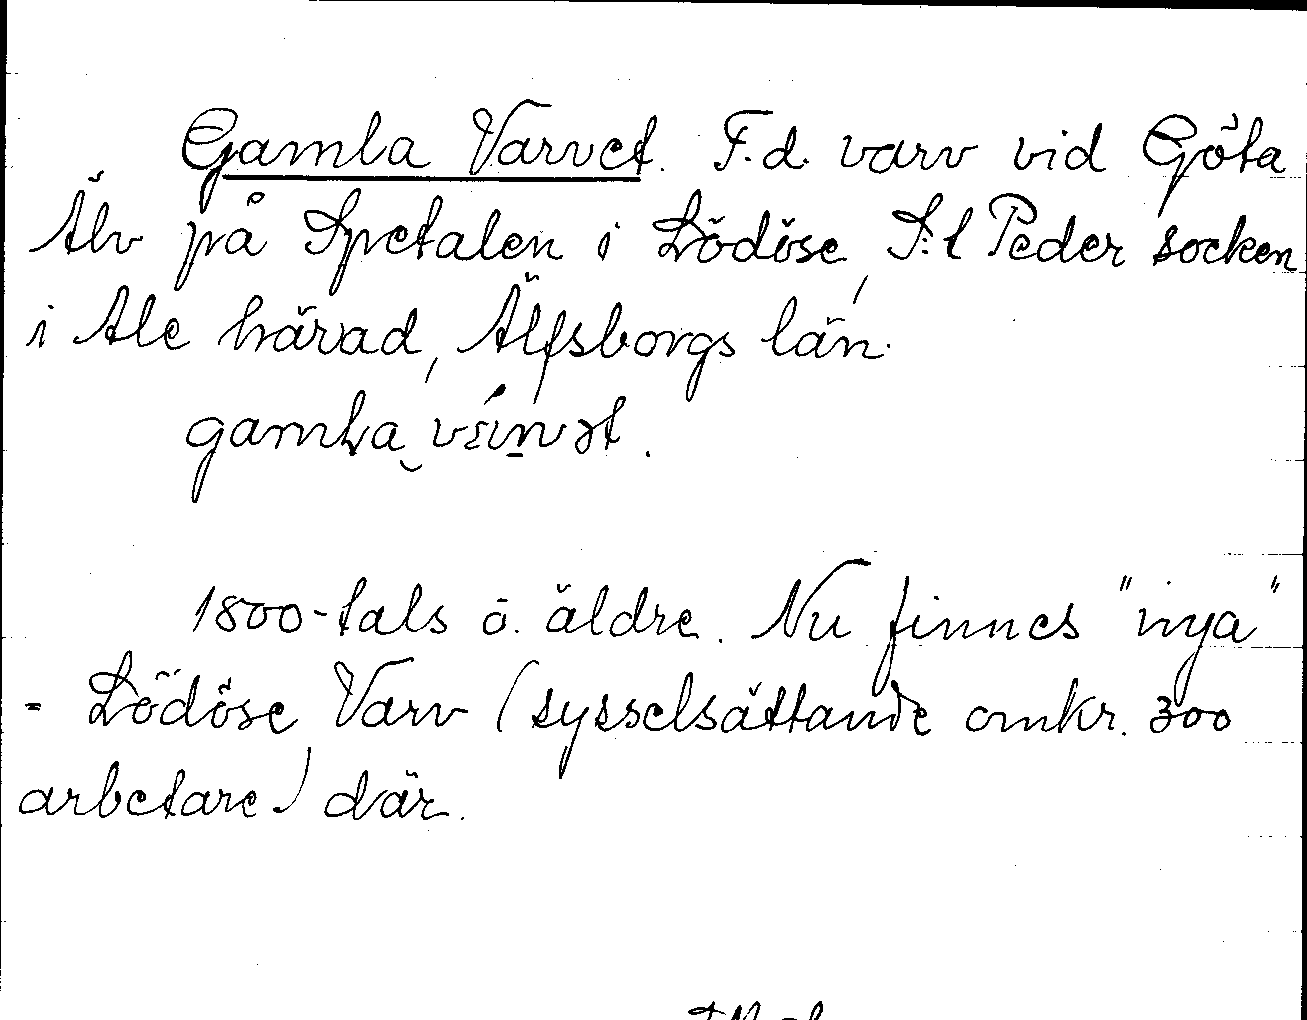 Gamla Varvet. F.d. varv vid Göta
Älv på Spetalen i Lödöse, S:t Peder socken
i Ale härad, Älfsborgs län.
gamla
1800-tals o. äldre. Nu finnes "nya"
- Lödöse Varv (sysselsättande omkr. 300
arbetare) där.